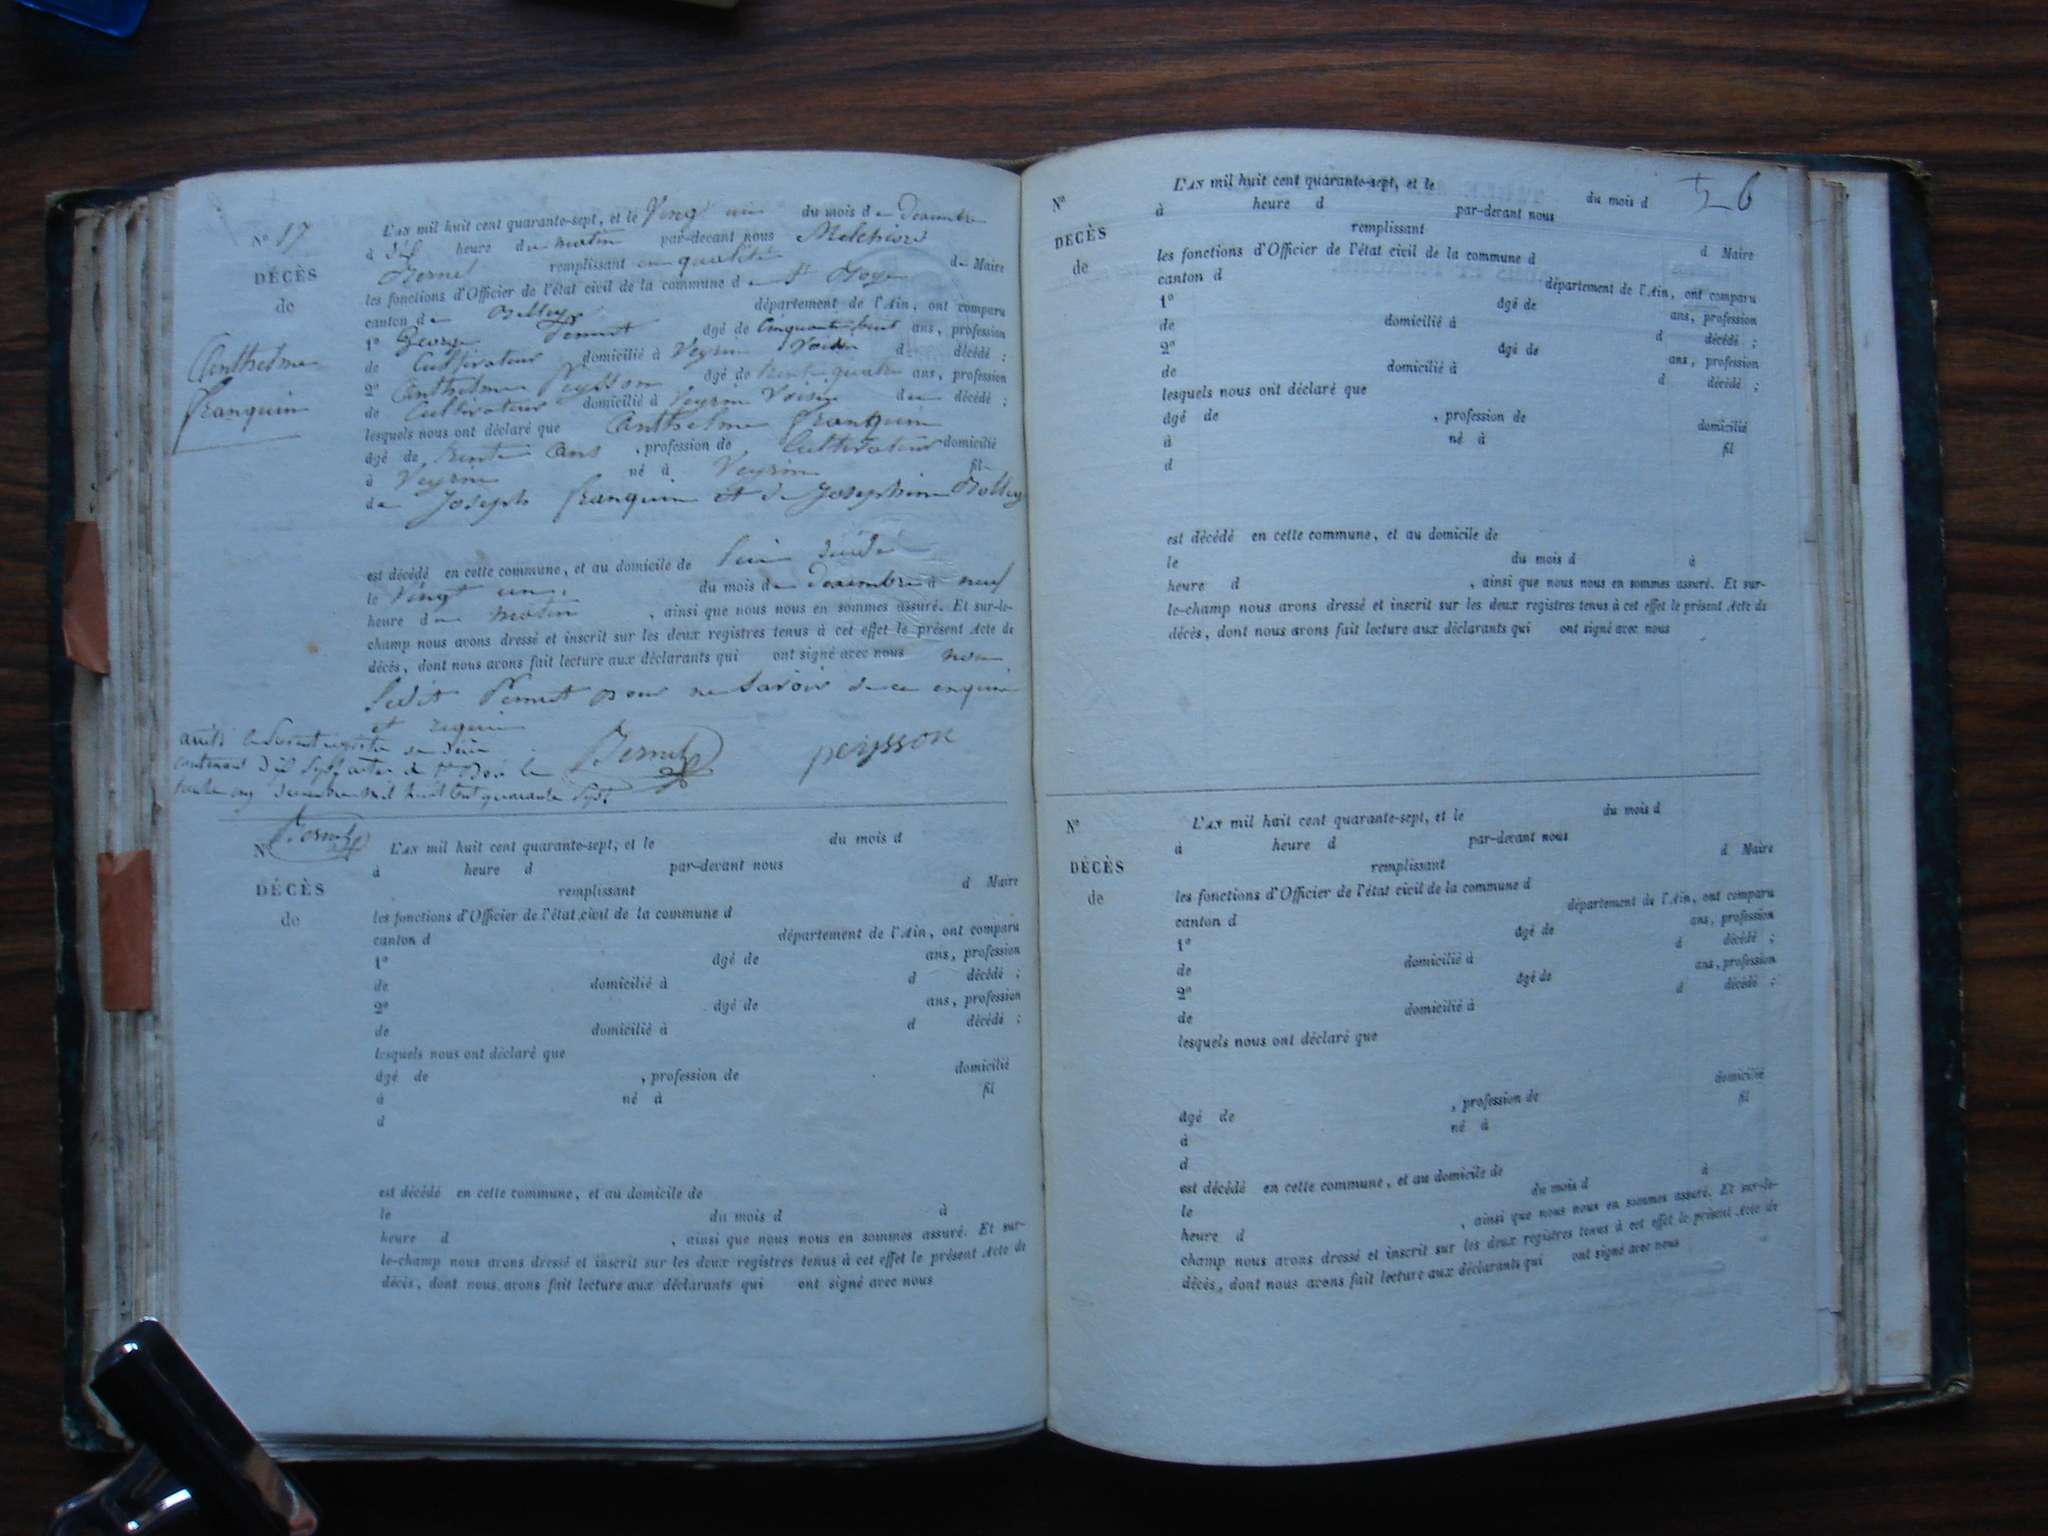 N° 17
DÉCÈS
de
Anthelme
franquin
L'AN mil huit cent quarante-sept, et le Vingt un du mois de Decembre
à dix heure du matin par-devant nous Melchior
Bernel remplissant en qualité de Maire
les fonctions d'Officier de l'état civil de la commune de St Boys
canton de Belley département de l'Ain, ont comparu
1° George Pernet âgé de Cinquante huit ans, profession
de Cultivateur domicilié à Veyrin Voisin d décédé ;
2° Anthelme Peysson âgé de trente quatre ans, profession
de Cultivateur domicilié à Veyrin Voisin du décédé ;
lesquels nous ont déclaré que Anthelme franquin
âgé de trente ans , profession de Cultivateur domicilié
à Veyrin né à Veyrin fil
de Joseph franquin et de Josephine Bolley
est décédé en cette commune, et au domicile de
le Vingt un, du mois de decembre à neuf
heure du matin , ainsi que nous nous en sommes assuré. Et sur-le-
champ nous avons dressé et inscrit sur les deux registres tenus à cet effet le présent Acte de
décès, dont nous avons fait lecture aux déclarants qui ont signé avec nous non
Ledit Pernet pour ne Savoir de ce enquis
et requis
Bernel peysson
arrêté le présent registre
contenant dix Sept actes à St Bois le
trente un decembre mil huit cent quarante Sept
Bernel
N°
DÉCÈS
de
L'AN mil huit cent quarante-sept, et le du mois d
à heure d par-devant nous
remplissant d Maire
les fonctions d'Officier de l'état civil de la commune d
canton d département de l'Ain, ont comparu
1° âgé de ans, profession
de domicilié à d décédé ;
2° âgé de ans, profession
de domicilié à d décédé ;
lesquels nous ont déclaré que
âgé de , profession de domicilié
à né à fil
d
est décédé en cette commune, et au domicile de
le du mois d à
heure d , ainsi que nous nous en sommes assuré. Et sur-
le-champ nous avons dressé et inscrit sur les deux registres tenus à cet effet le présent Acte de
décès, dont nous avons fait lecture aux déclarants qui ont signé avec nous
26
N°
DÉCÈS
de
L'AN mil huit cent quarante-sept, et le du mois d
à heure d par-devant nous
remplissant d Maire
les fonctions d'Officier de l'état civil de la commune d
canton d département de l'Ain, ont comparu
1° âgé de ans, profession
de domicilié à d décédé ;
2° âgé de ans, profession
de domicilié à d décédé ;
lesquels nous ont déclaré que
âgé de , profession de domicilié
à né à fil
d
est décédé en cette commune, et au domicile de
le du mois d à
heure d , ainsi que nous nous en sommes assuré. Et sur-
le-champ nous avons dressé et inscrit sur les deux registres tenus à cet effet le présent Acte de
décès, dont nous avons fait lecture aux déclarants qui ont signé avec nous
N°
DÉCÈS
de
L'AN mil huit cent quarante-sept, et le du mois d
à heure d par-devant nous
remplissant d Maire
les fonctions d'Officier de l'état civil de la commune d
canton d département de l'Ain, ont comparu
1° âgé de ans, profession
de domicilié à d décédé ;
2° âgé de ans, profession
de domicilié à d décédé ;
lesquels nous ont déclaré que
âgé de , profession de domicilié
à né à fil
d
est décédé en cette commune, et au domicile de
le du mois d à
heure d , ainsi que nous nous en sommes assuré. Et sur-le-
champ nous avons dressé et inscrit sur les deux registres tenus à cet effet le présent Acte de
décès, dont nous avons fait lecture aux déclarants qui ont signé avec nous